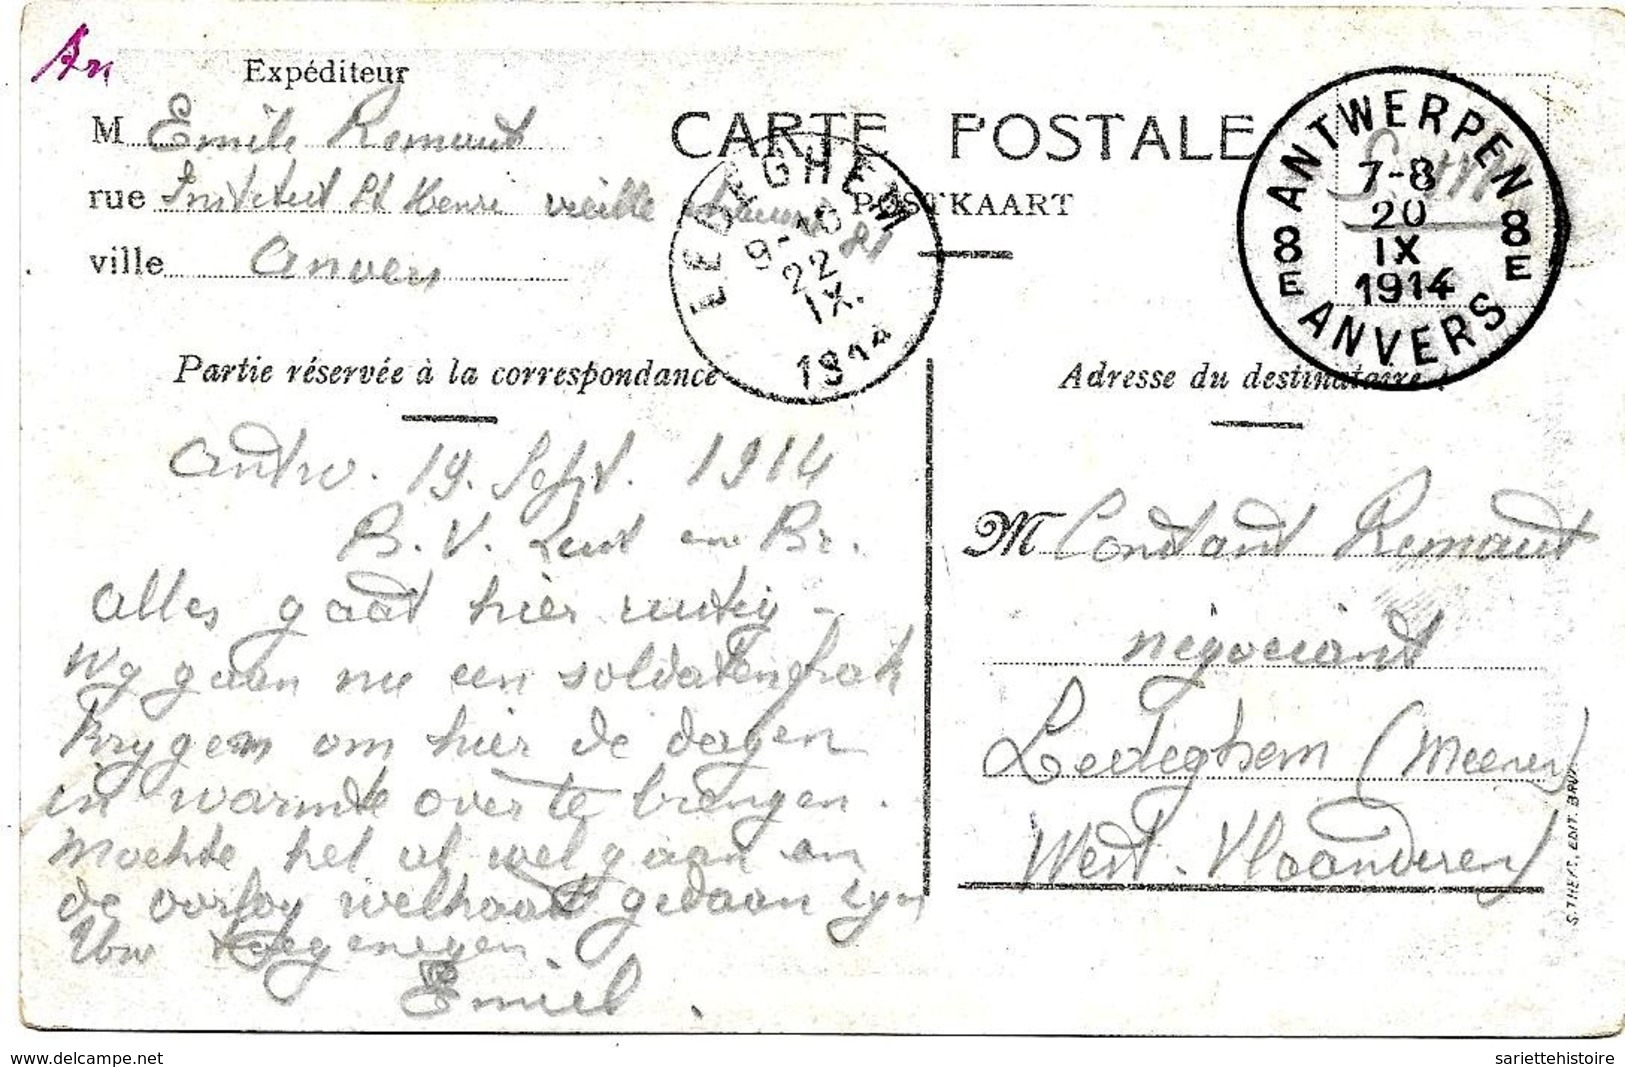 An
Expéditeur
M Emile Remaut
rue Institut St Henri vieille
ville Anvers
CARTE POSTALE
POSTKAART
LEDEGHEM
9-10
22
IX.
1914
ANTWERPEN
7-8
20
IX
1914
8E 8E
ANVERS
S. M.
Partie réservée à la correspondance
Antw. 19. Sept. 1914
B. V. Zust en Br.
Alles gaat hier rustig -
Wy gaan nu een soldatenfrak
krygen om hier de dagen
in warmte over te brengen.
Mochte het al wel gaan en
de oorlog welhaast gedaan zyn
Uw toegenegen
Emiel.
Adresse du destinataire
M Constant Remaut
négociant
Ledeghem (Meenen)
West-Vlaanderen
S. THEFT, EDIT. BRUX
www.delcampe.net
sariettehistoire